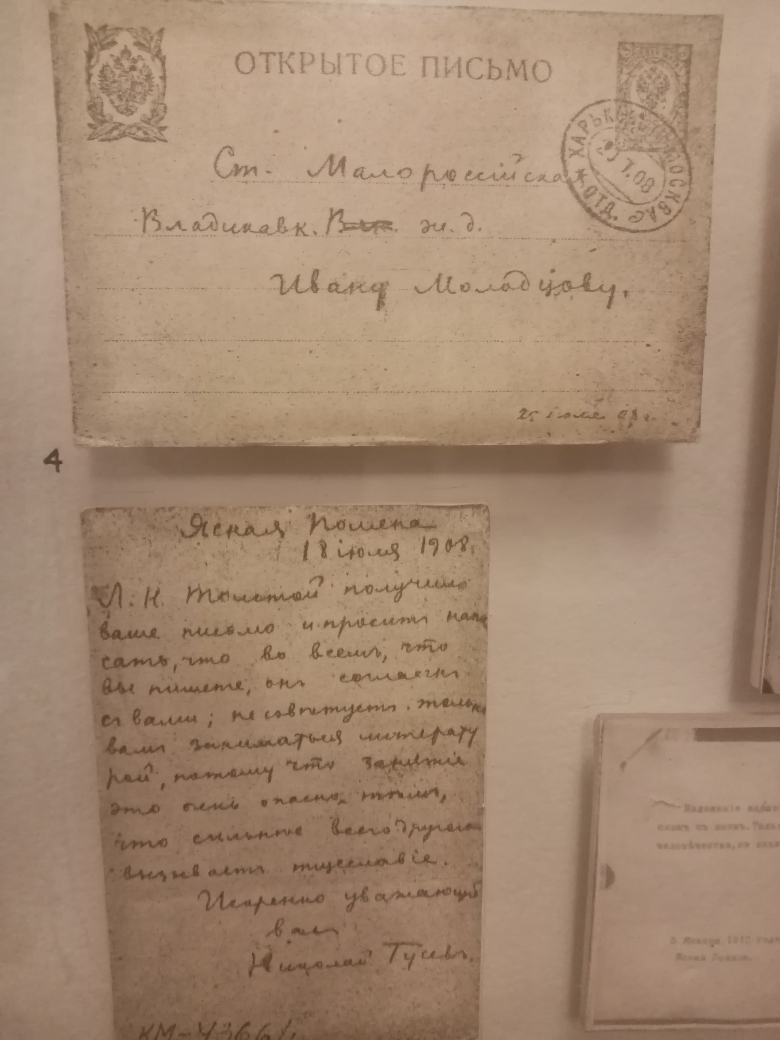 ОТКРЫТОЕ ПИСЬМО
ХАРЬК МОСКВА
7.08
Ст. Малороссійская
Владикавк. ж. д.
Ивану Молодцову.
25 іюля 08 г.
4
Ясная Поляна
18 іюля 1908.
Л. Н. Толстой получилъ
ваше письмо и проситъ напи
сать, что во всемъ, что
вы пишете, онъ согласенъ
съ вами; не совѣтуетъ только
вамъ заниматься литерату
рой, потому что занятіе
это очень опасно тѣмъ,
что сильнѣе всего другого
вызываетъ тщеславіе.
Искренно уважающій
васъ
Николай Гусевъ.
КМ-4366/